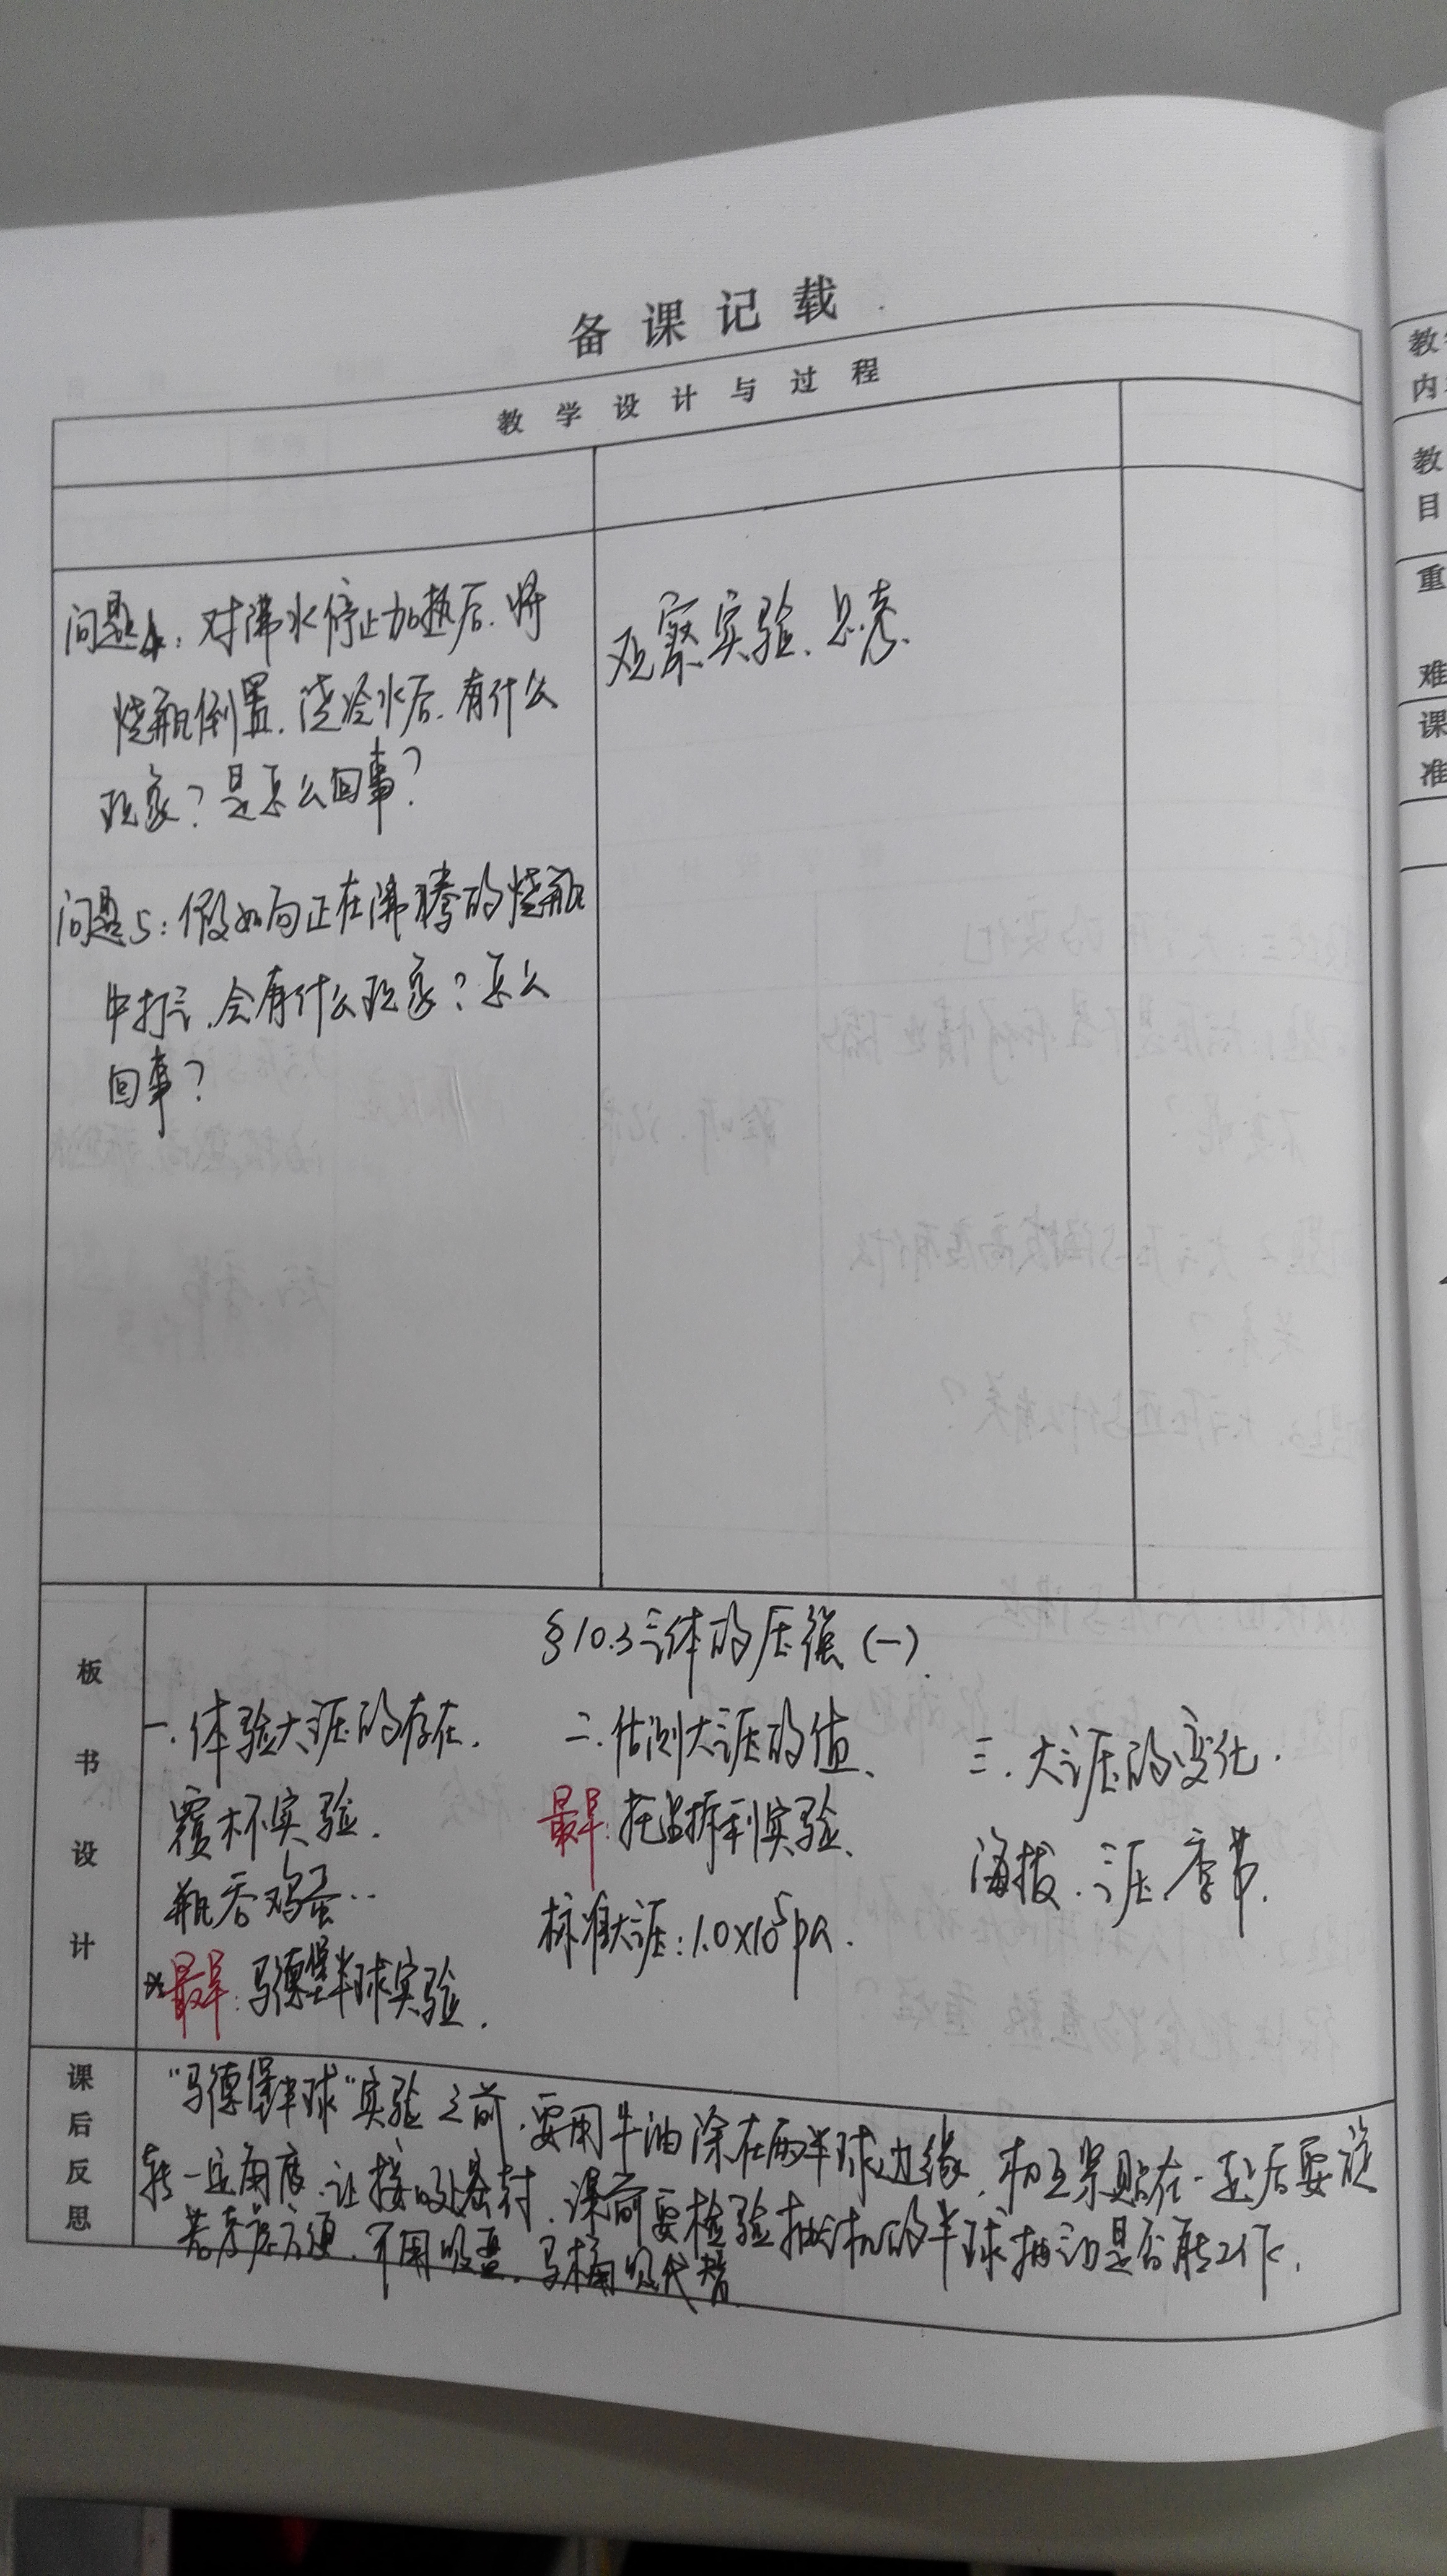 备课记载
教学设计与过程
问题4：对沸水停止加热后，将
烧瓶倒置，浇冷水后，有什么
现象？是怎么回事？
观察实验、思考、
问题5：假如向正在沸腾的烧瓶
中打气，会有什么现象？怎么
回事？
板书设计
§10.3气体的压强（一）
一、体验大气压的存在．
覆杯实验．
瓶吞鸡蛋…
※最早：马德堡半球实验．
二、估测大气压的值、
最早：托里拆利实验、
标准大气压：1.0×10⁵pa．
三、大气压的变化．
海拔、气压、季节．
课后反思
“马德堡半球”实验之前，要用牛油涂在两半球边缘，相互紧贴在一起后要旋
转一定角度，让接吻处密封，课前要检验抽气机的半球抽气动是否能工作，
若考虑方便，可用吸盘、马桶吸代替
教
内
教
目
重
难
课
准